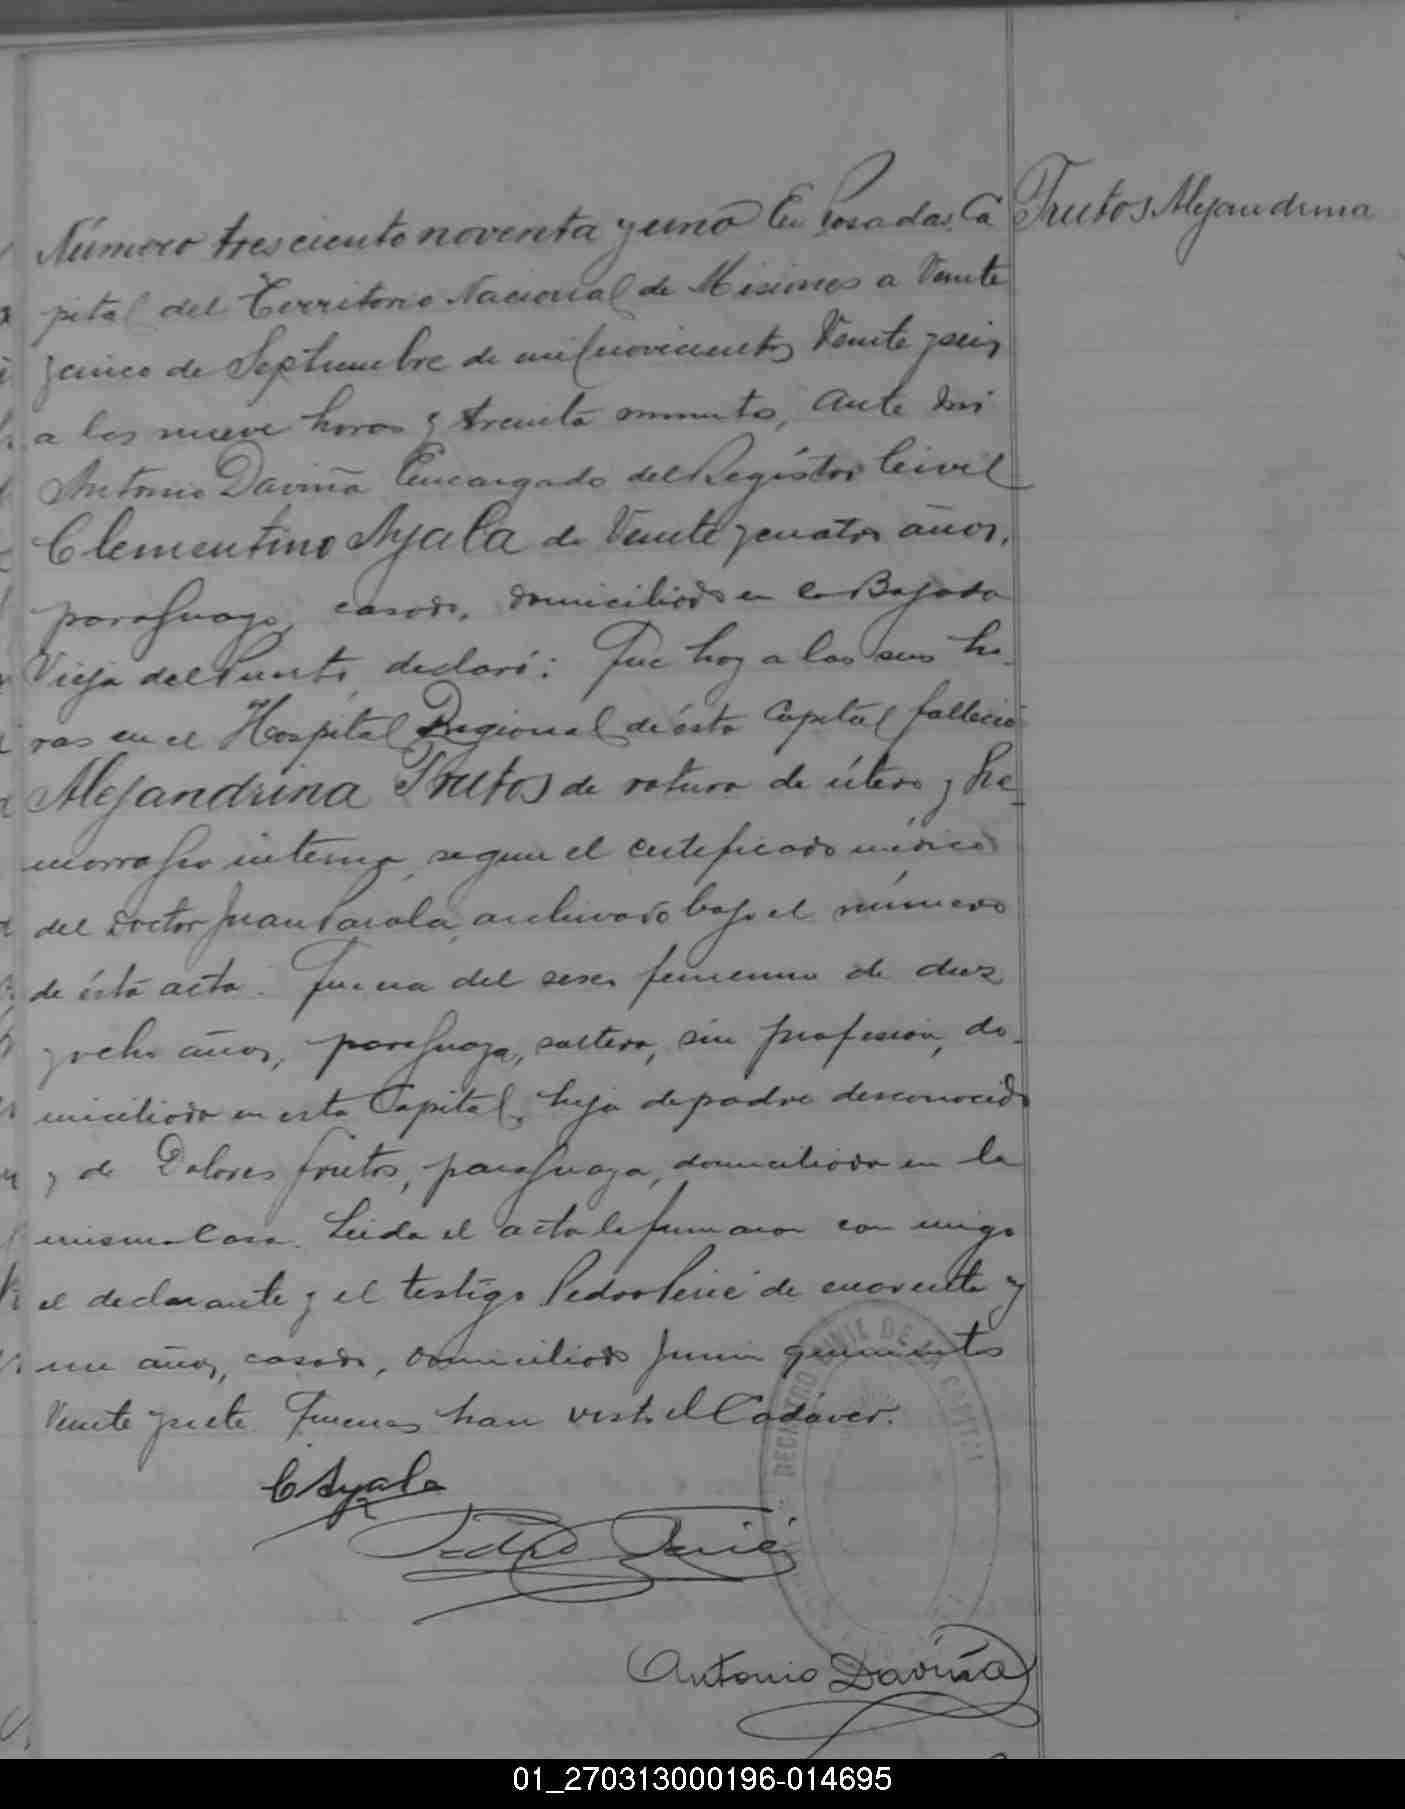 Número tresciento noventa y uno En Posadas, Ca
Frutos Alejandrina
pital del Territorio Nacional de Misiones a Veinte
y cinco de Septiembre de mil novecientos Veinte y seis
a las nueve horas y treinta minutos, ante mi
Antonio Daviña Encargado del Registro Civil
Clementino Ayala de Veinte y cuatro años,
paraguayo, casado, domiciliado en la Bajada
Vieja del Puerto, declaró: Que hoy a las seis ho-
ras en el Hospital Regional de ésta Capital falleció
Alejandrina Frutos de rotura de útero y he-
morragia interna, segun el certificado médico
del doctor Juan archivado bajo el número
de ésta acta. Que era del sexo femenino de diez
y ocho años, paraguaya, soltera, sin profesión, do-
miciliada en esta Capital, hija de padre desconocido
y de Dolores Frutos, paraguaya, domiciliada en la
misma Casa. Leida el acta la firmaron con migo
el declarante y el testigo Pedro de cuarenta y
un años, casado, domiciliado Junin quinientos
Veinte y siete. Quienes han visto el Cadáver.
C Ayala
Pedro
Antonio Daviña
01_270313000196-014695